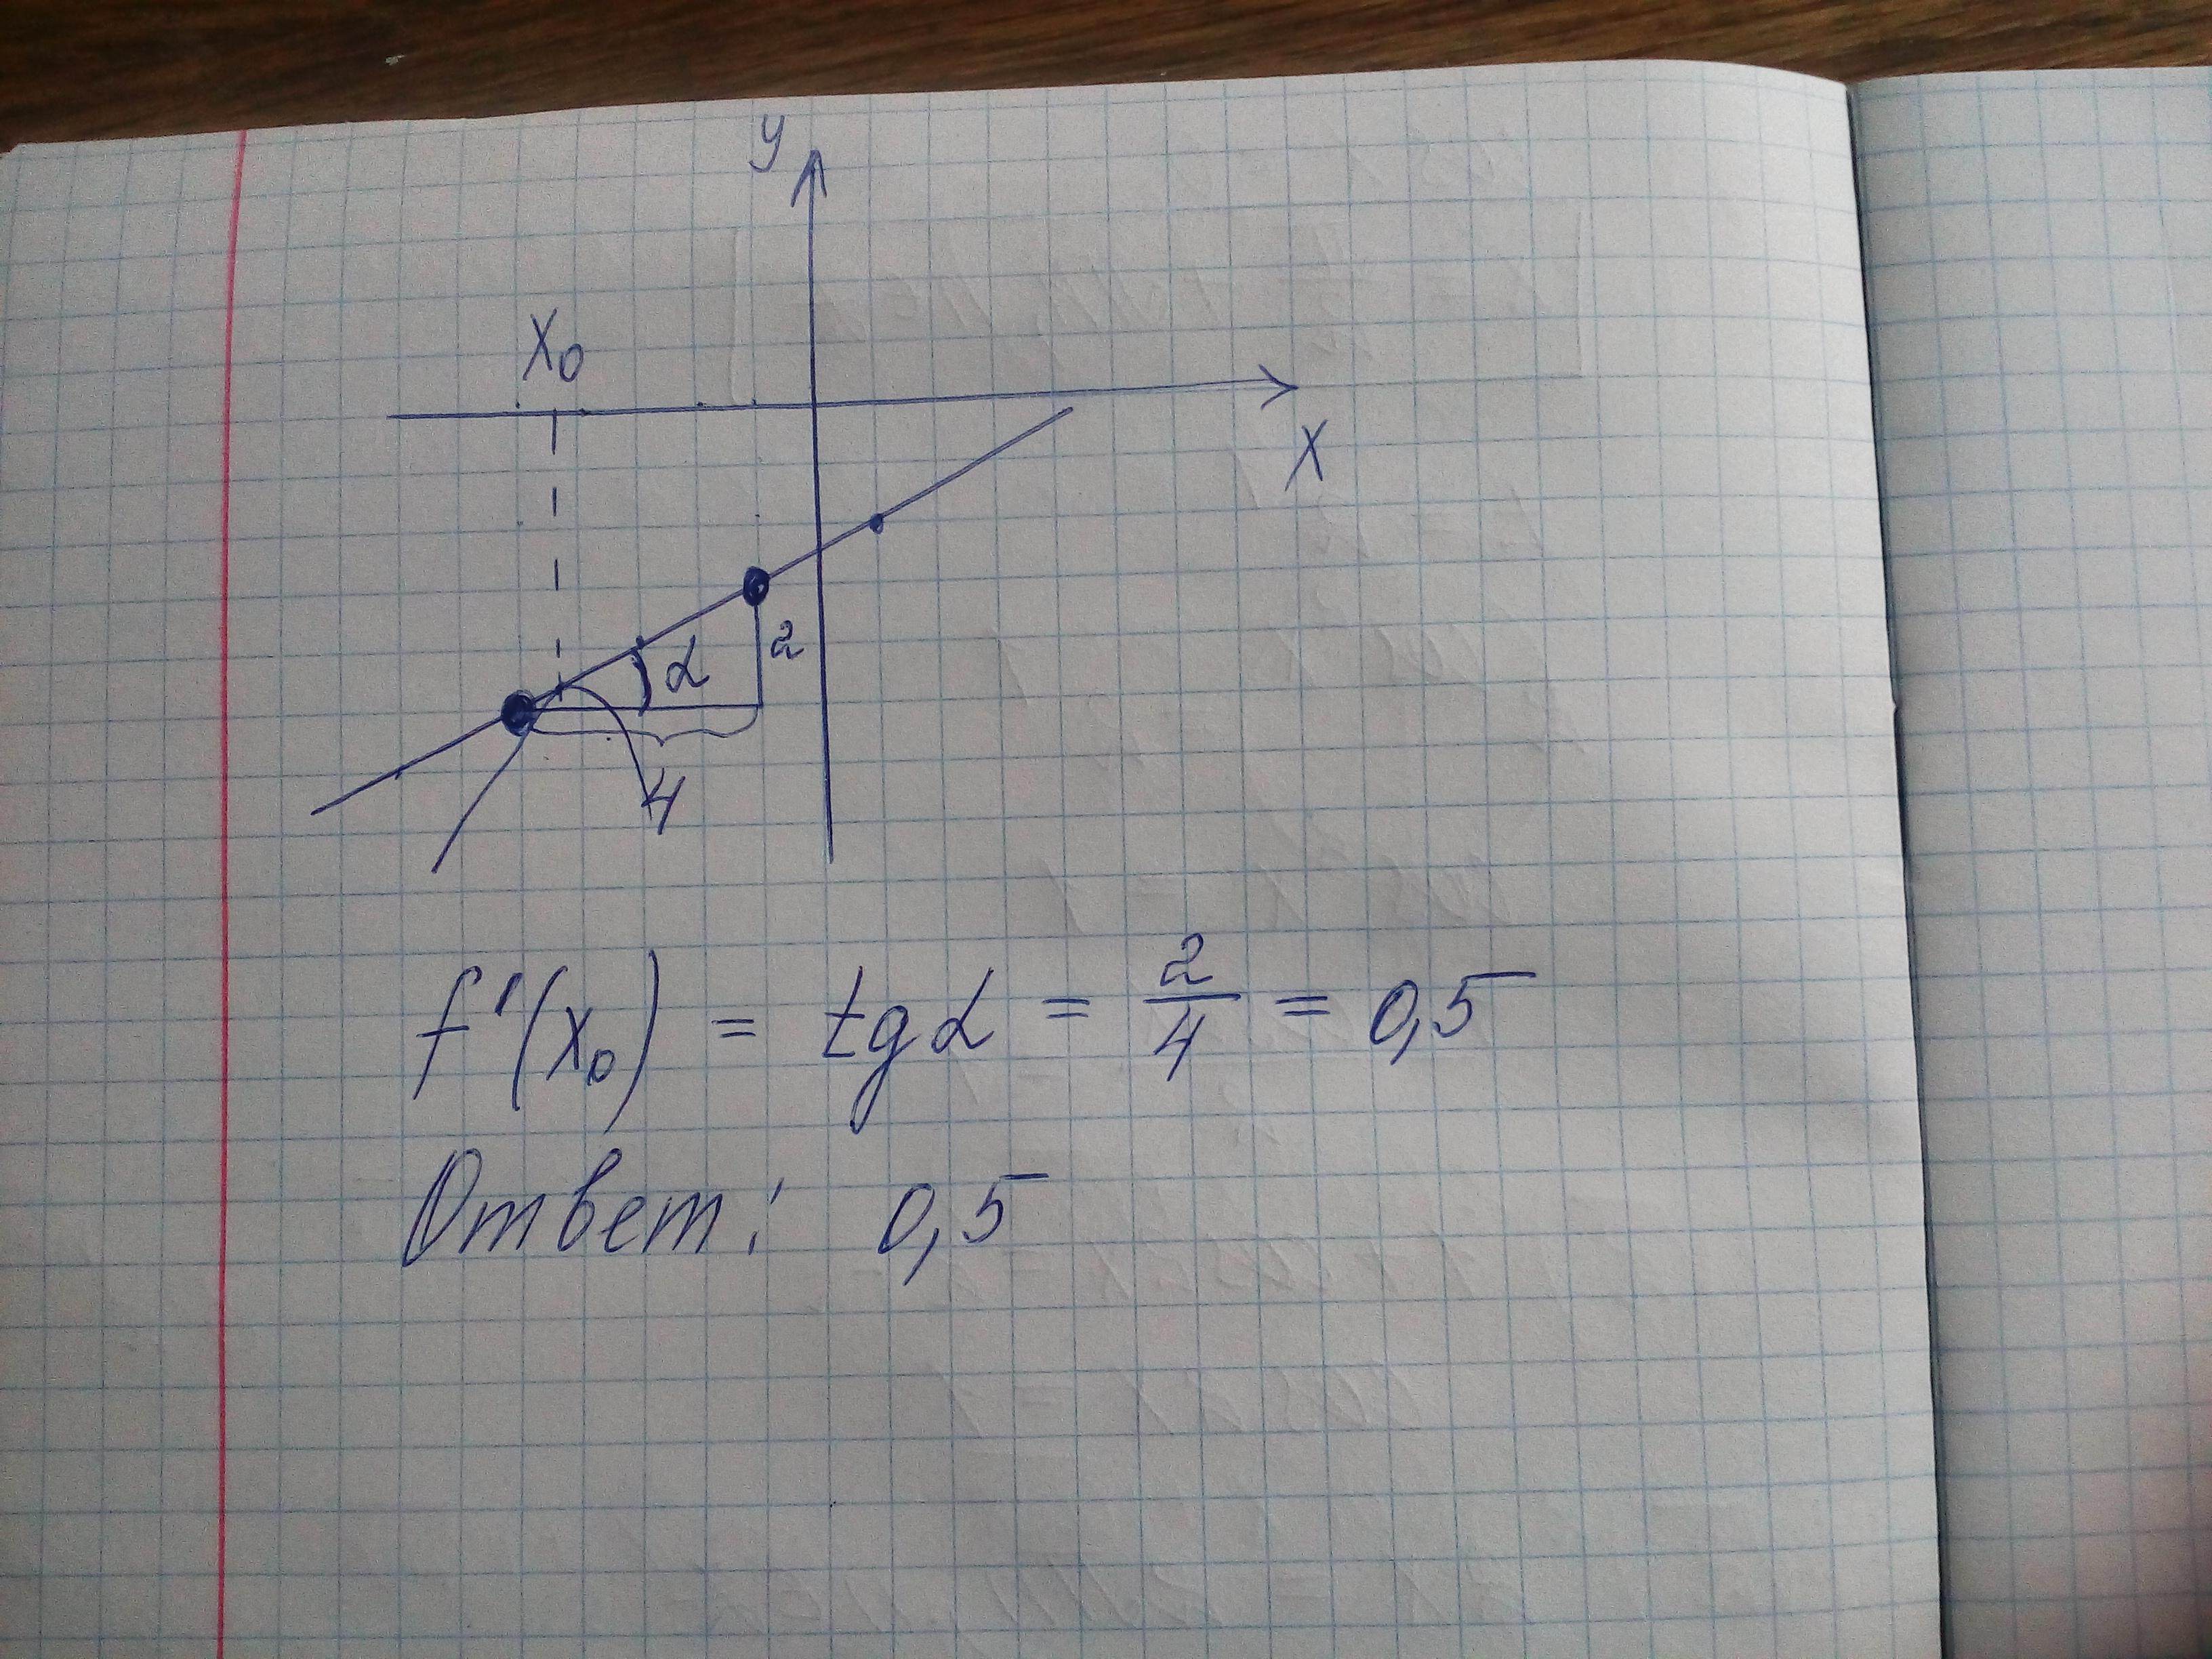 y
x₀
x
2
α
4
f'(x₀) = tg α = 2/4 = 0,5
Ответ: 0,5